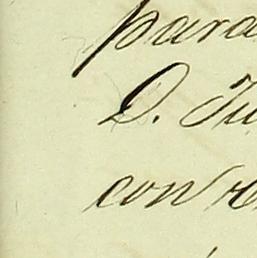 para
D. Ju
con re